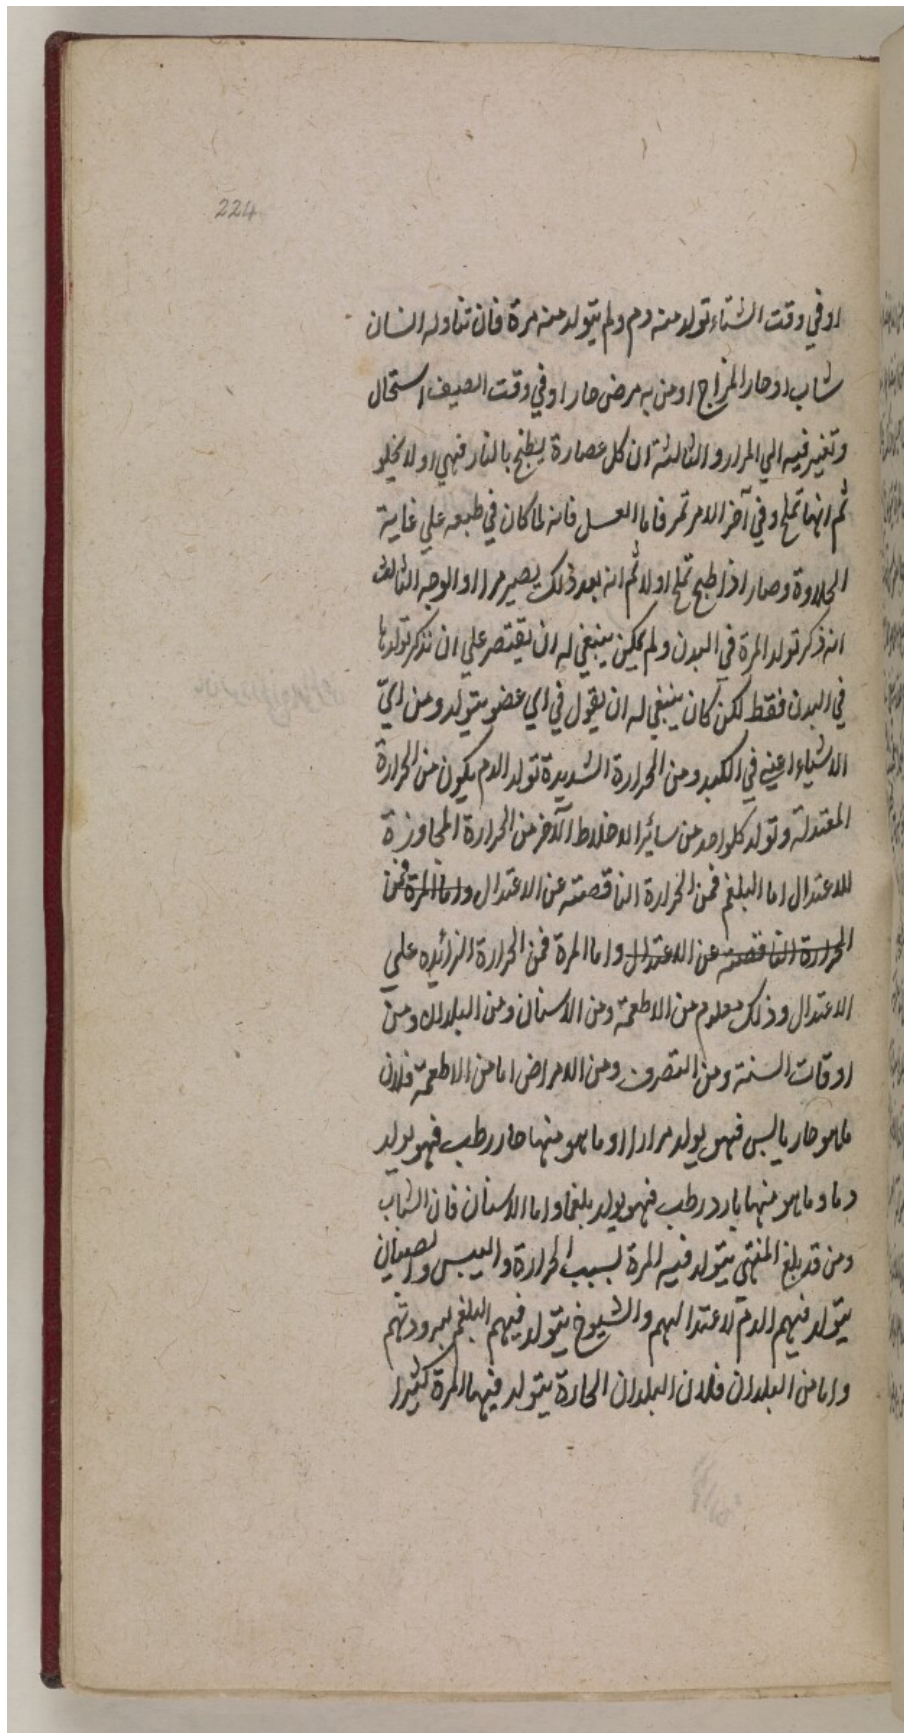 224
او في وقت الشتاء تولد منه دم ولم يتولد منه مرة فان تناوله انسان
شاب او حار المزاج او من به مرض حار او في وقت الصيف استحال
وتغير فيه الي المرار والثالثة ان كل عصارة يطبخ بالنار فهي اولا يحلو
ثم انها تملح وفي آخر الامر تمر فاما العسل فانه لما كان في طبعه علي غاية
الحلاوة وصار اذا طبخ تملح اولا ثم انه بعد ذلك يصير مرا والوجه الثالث
انه ذكر تولد المرة في البدن ولم يكن ينبغي له ان يقتصر علي ان نذكر تولدها
في البدن فقط لكن كان ينبغي له ان يقول في اي عضو يتولد ومن ايّ
الاشياء اعني في الكبد ومن الحرارة الشديدة تولد الدم يكون من الحرارة
المعتدلة وتولد كلواحد من سائر الاخلاط الآخر من الحرارة المجاوزة
للاعتدال اما البلغم فمن الحرارة الناقصته عن الاعتدال واما المرة فمن
الحرارة الناقصته عن الاعتدال واما المرة فمن الحرارة الزائده علي
الاعتدال وذلك معلوم من الاطعمة ومن الاسنان ومن البلدان ومن
اوقات السنة ومن التصرف ومن الامراض اما من الاطعمة فلان
ماهو حار يابس فهو يولد مرارا او ما هو منها حار رطب فهو يولد
دما وما هو منها بارد رطب فهو يولد بلغما واما الاسنان فان الشاب
ومن قد بلغ المنتهي يتولد فيه المرة لسبب الحرارة واليبس والصبيان
يتولد فيهم الدم لاعتدالهم والشيوخ يتولد فيهم البلغم لبرودتهم
واما من البلدان فلان البلدان الحارة يتولد فيها المرة كثيرا